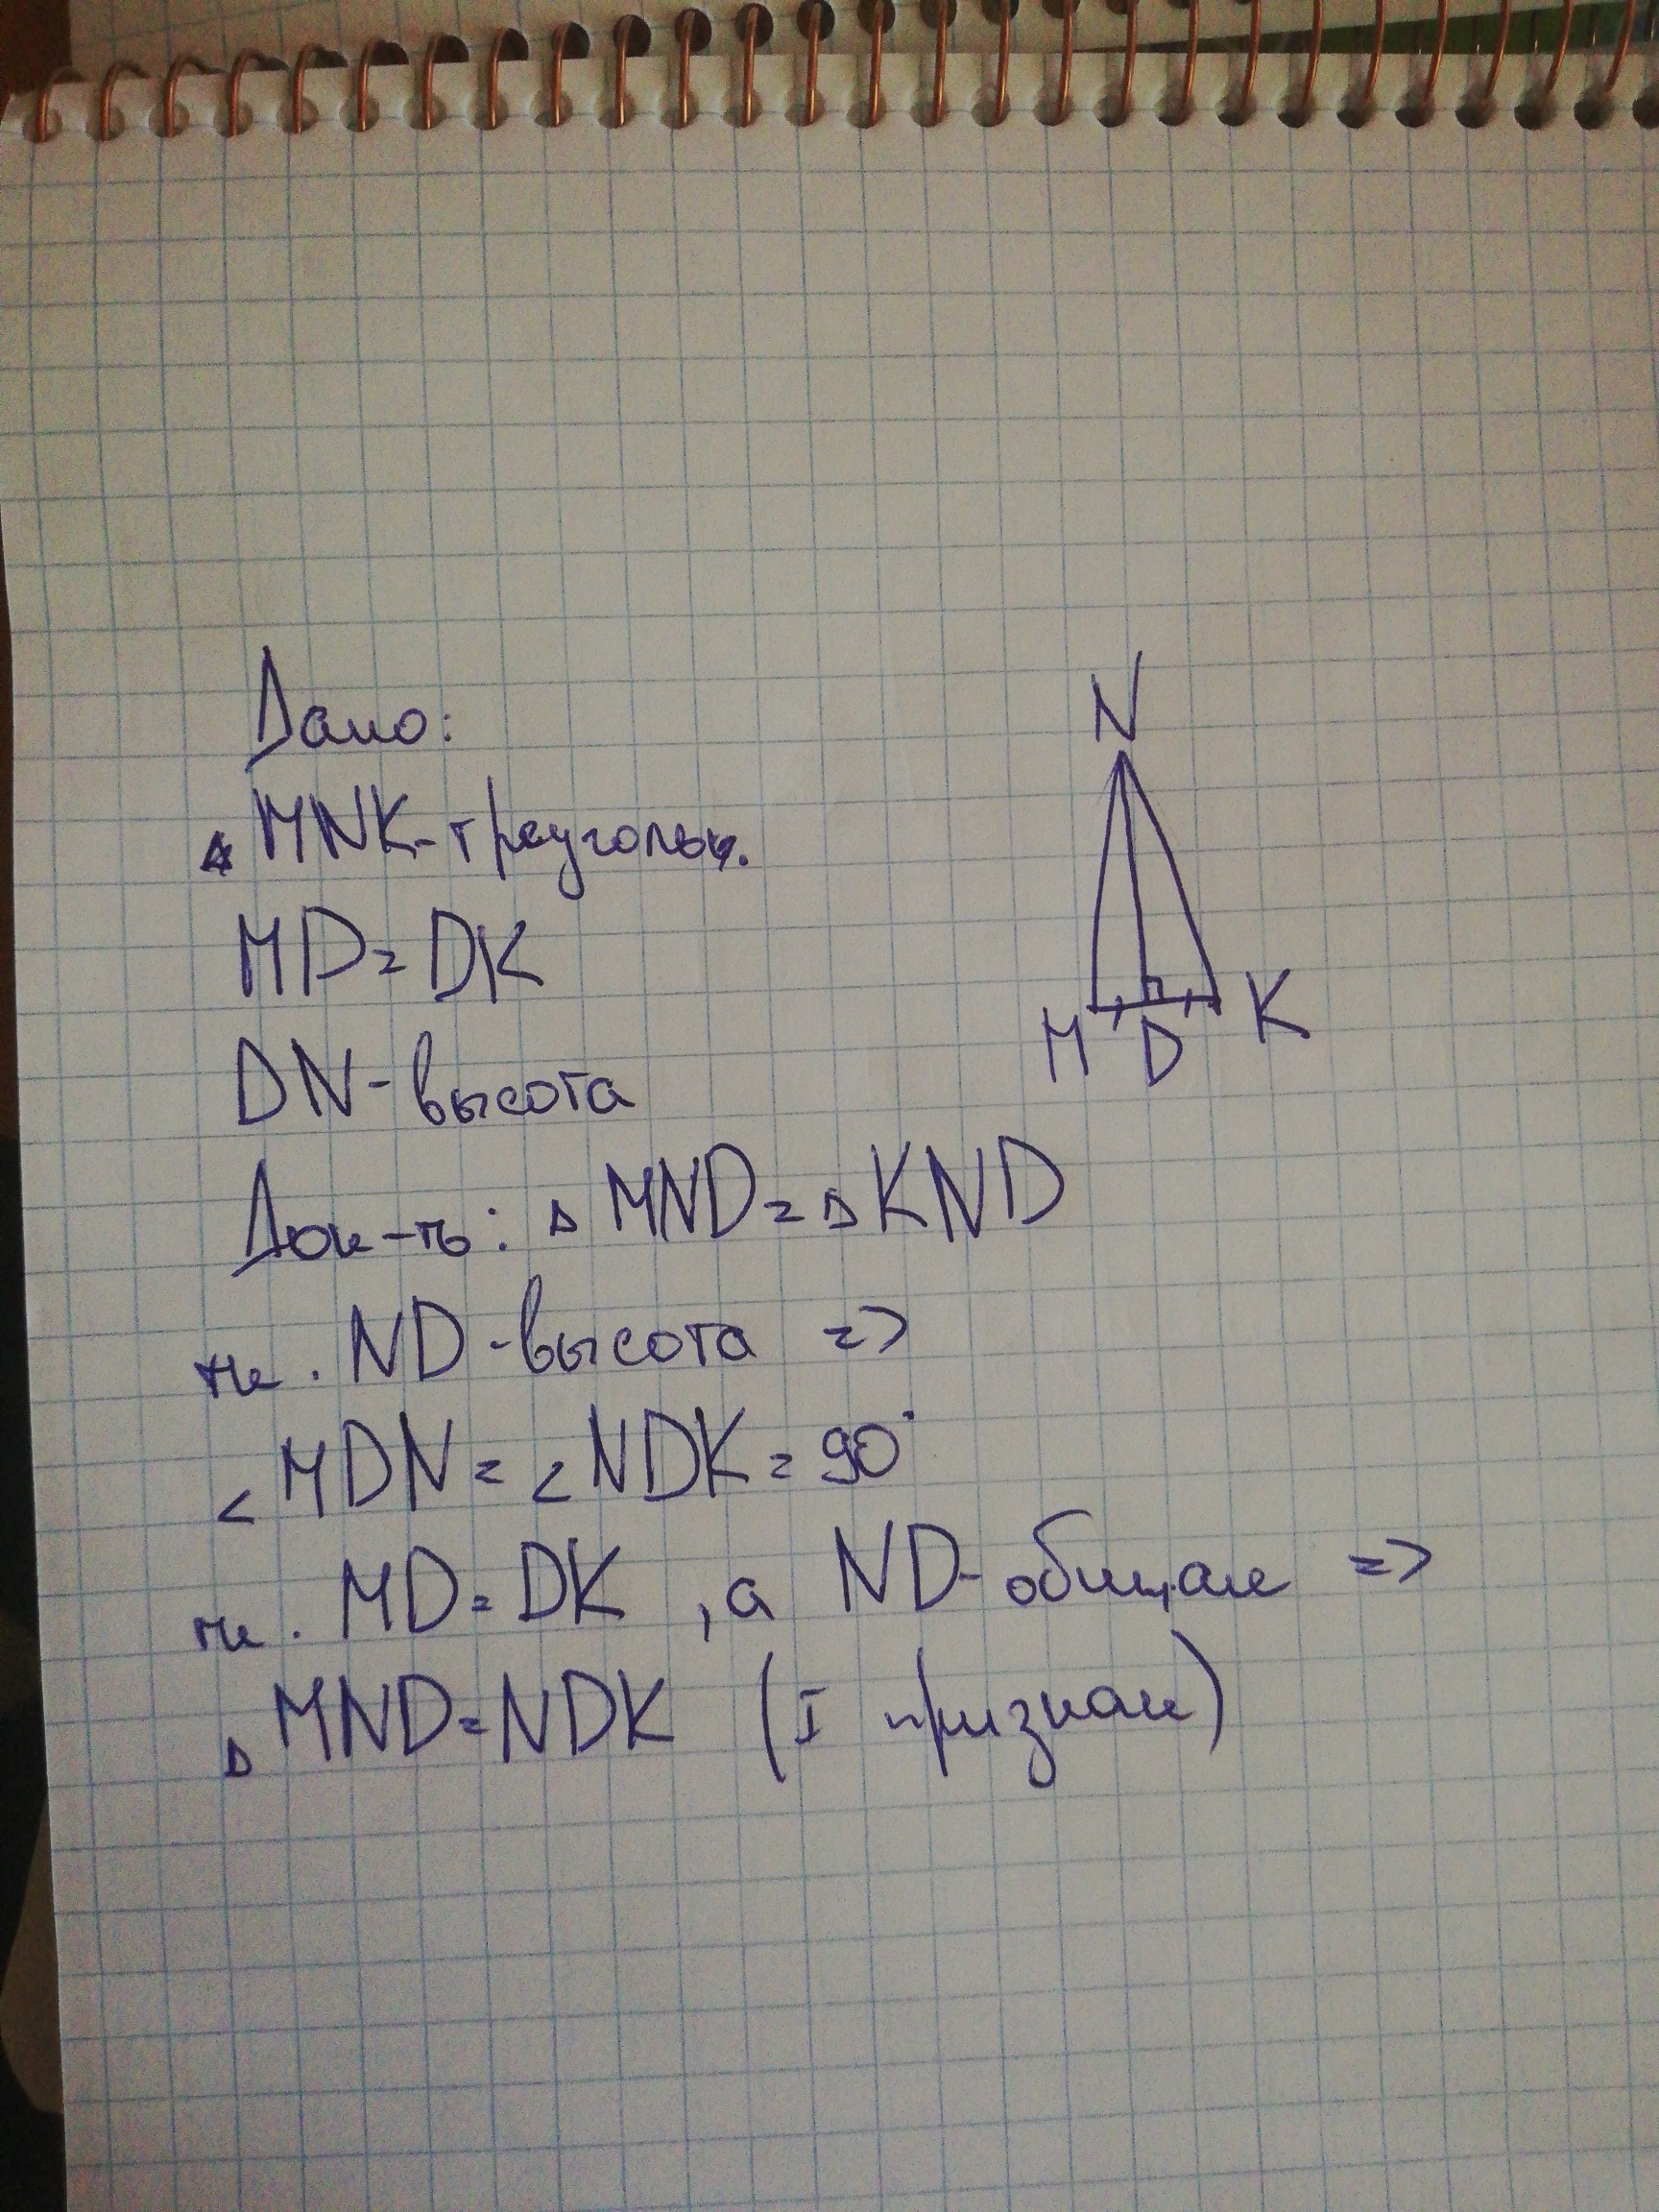 Дано:
N
△ MNK-треугольн.
MD=DK
M D K
DN-высота
Док-ть: △ MND=△ KND
тк. ND-высота =>
∠MDN=∠NDK=90°
тк. MD=DK, а ND-общая =>
△ MND=NDK (I признак)